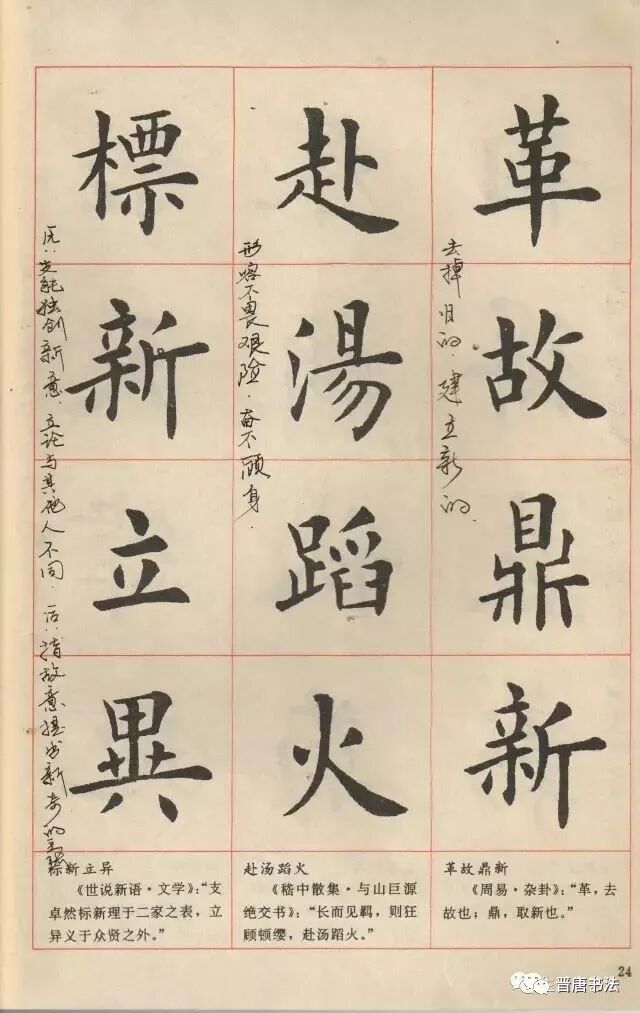 革故鼎新
去掉旧的.建立新的.
赴湯蹈火
形容不畏艰险.奋不顾身.
標新立異
立论与其他人不同.
革故鼎新
《周易·杂卦》：“革，去
故也；鼎，取新也。”
赴汤蹈火
《嵇中散集·与山巨源
绝交书》：“长而见羁，则狂
顾顿缨，赴汤蹈火。”
标新立异
《世说新语·文学》：“支
卓然标新理于二家之表，立
异义于众贤之外。”
24
晋唐书法